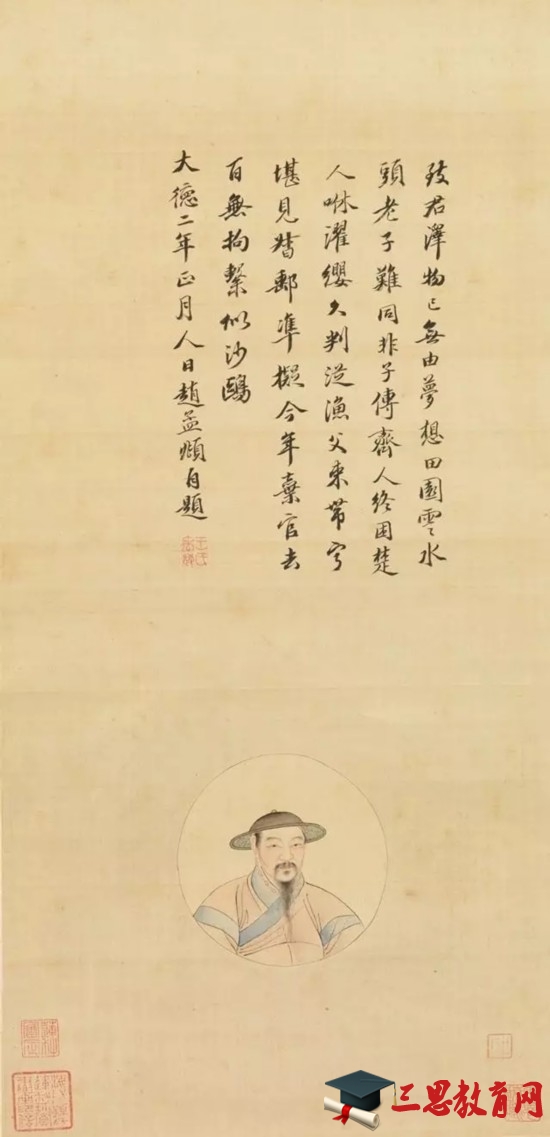 致君澤物已無由夢想田園雲水
頭老子難同非子傳齊人終困楚
人咻濯纓久判從漁父束帶寧
堪見督郵準擬今年棄官去
百無拘繫似沙鷗
大德二年正月人日趙孟頫自題
三思教育网